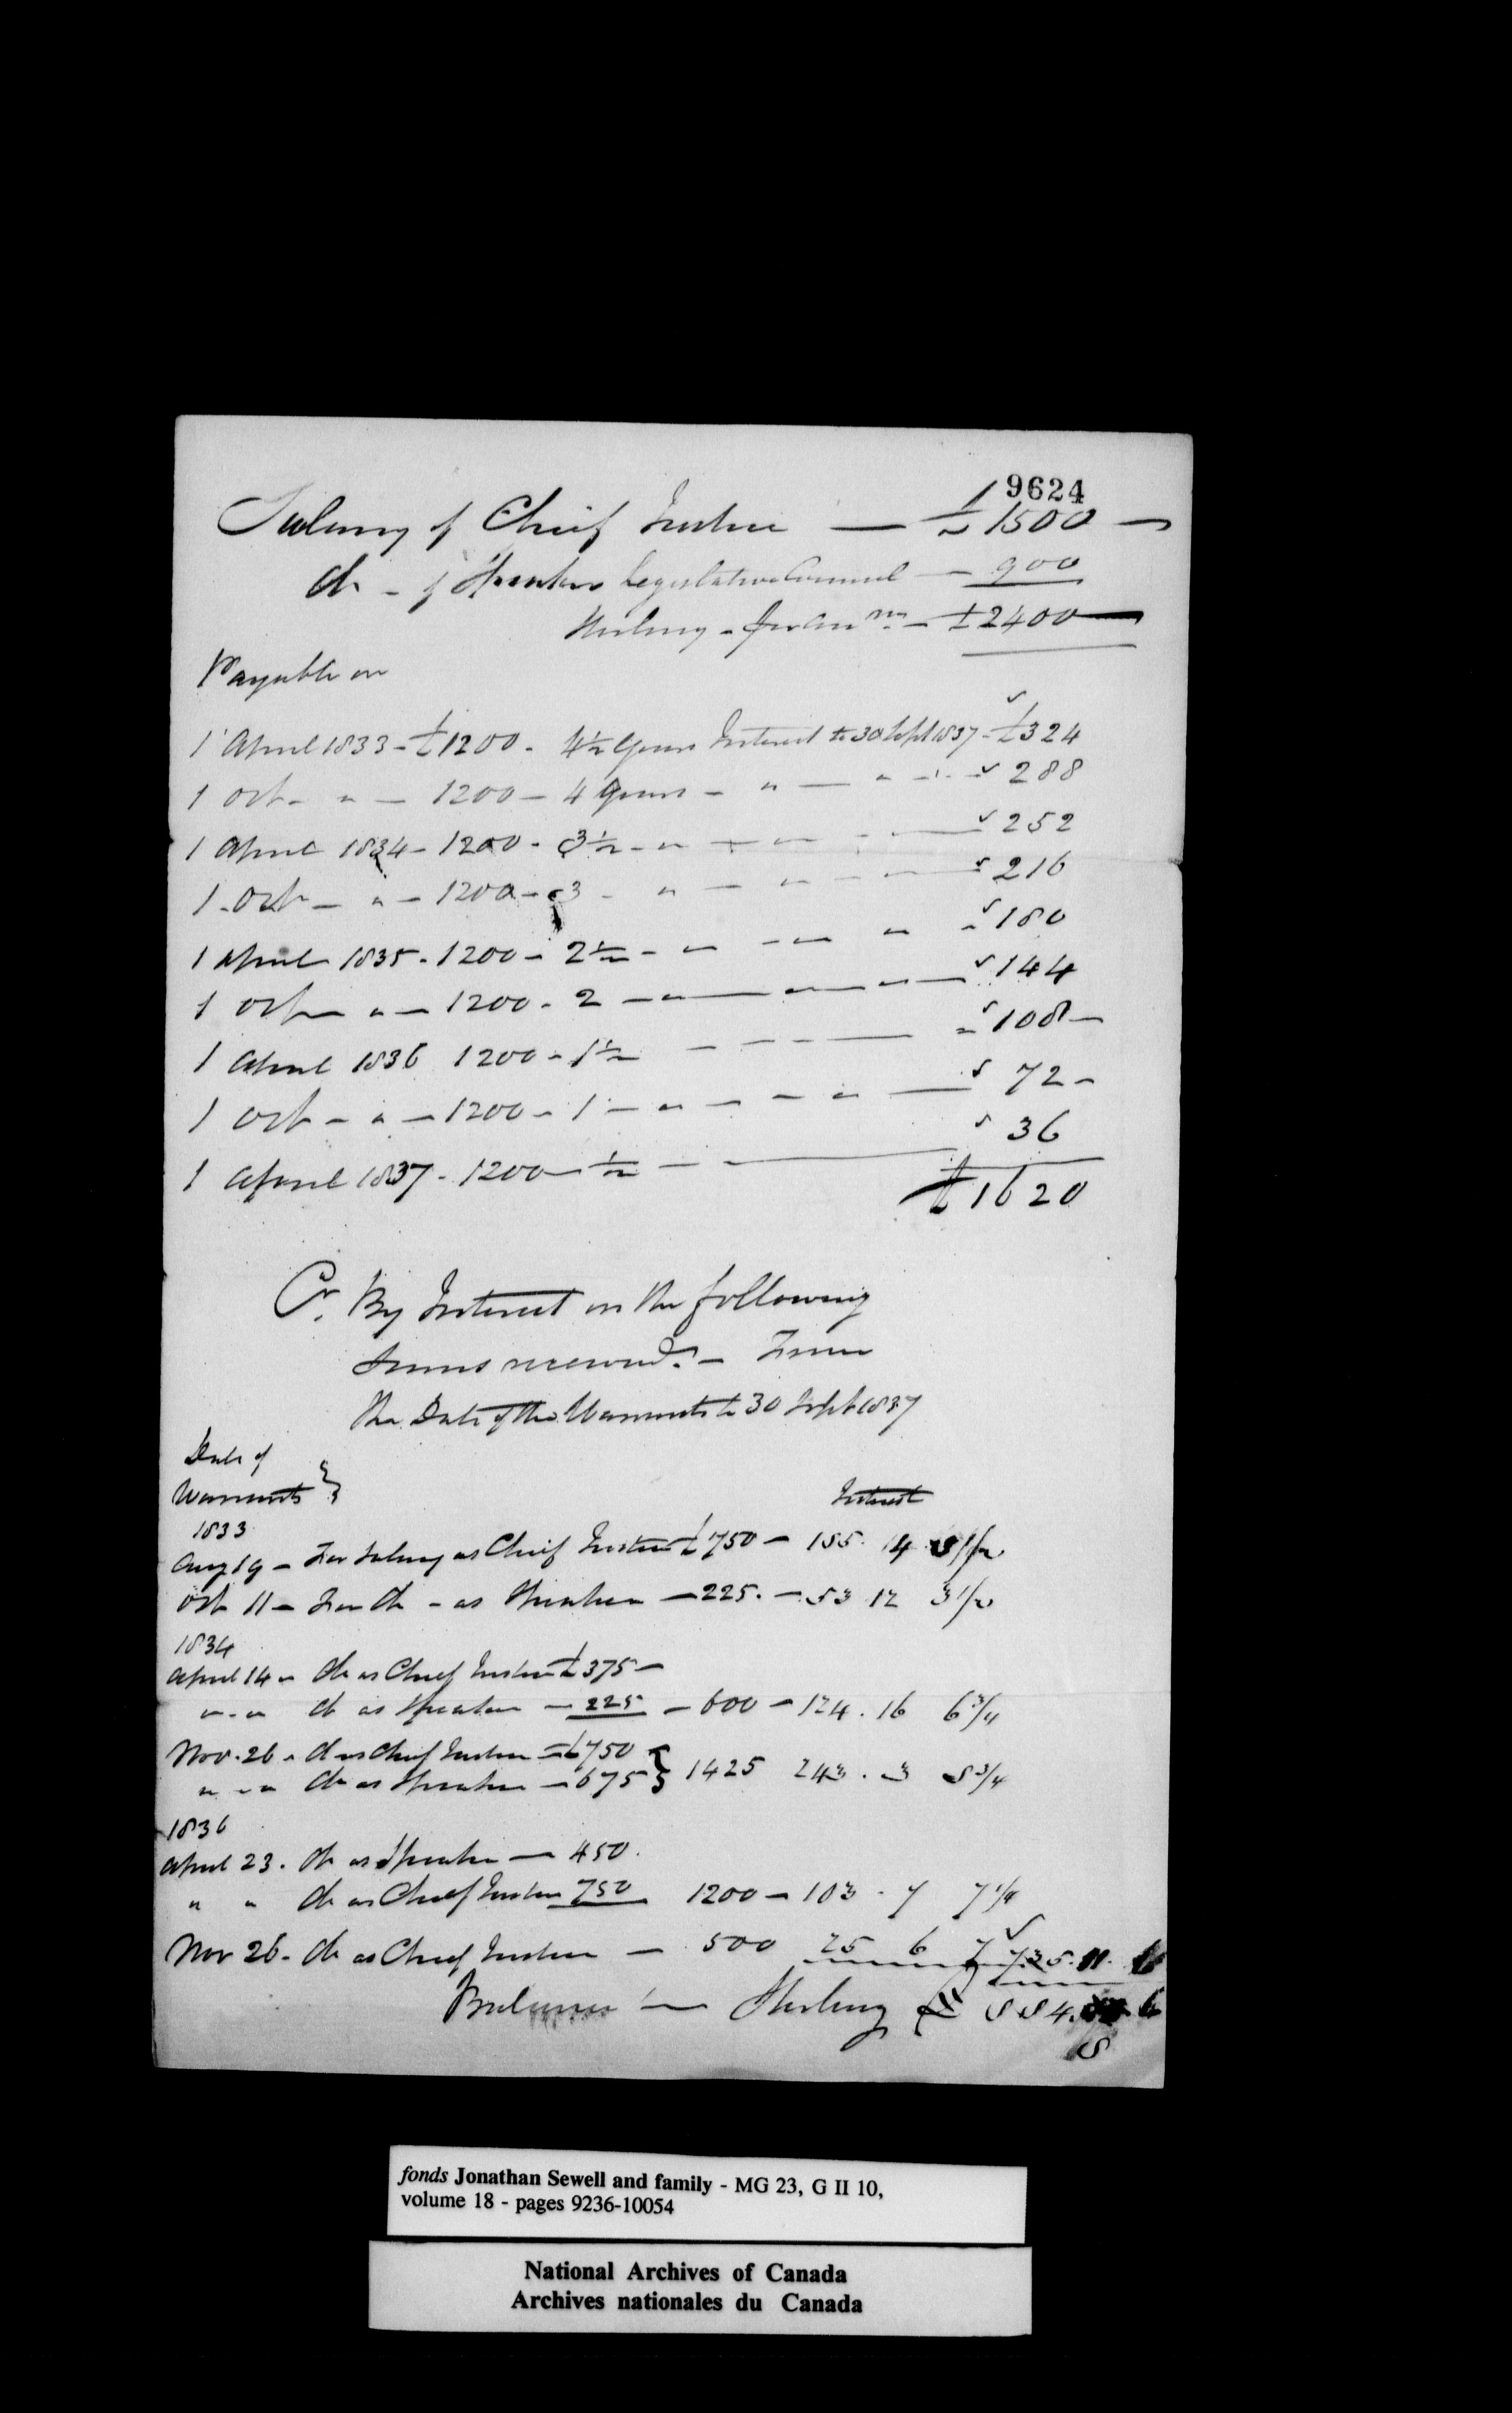 9624
Salary of Chief Justice — £1500 —
do - of Speaker Legislative Council — 900
Sterling - per Ann m - £2400 —
Payable on
1 April 1833 - £1200 - 4½ years Interest to 30 Sept 1837 - £324
1 Oct - " — 1200 — 4 years - " — " - - 288
1 April 1834 - 1200 - 3½ - " — " - — 252
1 Oct — " — 1200 - 3 - " — " - " — 216
1 April 1835 - 1200 - 2½ - " - " " - 180
1 Oct — " — 1200 - 2 — " — " — " — 144
1 April 1836 1200 - 1½ - - - — 108 —
1 Oct - " — 1200 - 1 — " - - " — 72 -
1 April 1837 - 1200 — ½ - — 36
£1620
Cr. By Interest on the following
sums received. - From
the Date of the Warrants to 30 Sept 1837
Date of
Warrants } Interest
1833
Aug 19 - For Salary as Chief Justice £750 - 185. 14 8½
Oct 11 - For do - as Speaker - 225. - 53 12 3½
1834
April 14 " do as Chief Justice £375 -
" - " do as Speaker - 225 - 600 - 124. 16 6¾
Nov. 26 " do as Chief Justice - £750 }
" - " do as Speaker - 675 } 1425 243. 3 8¾
1836
April 23. do as Speaker — 450.
" " do as Chief Justice 750 1200 - 103 - 7 7¼
Nov 26 - do as Chief Justice — 500 25 6 7 735. 11.
Balance — Sterling £ 884. 6
8
fonds Jonathan Sewell and family - MG 23, G II 10,
volume 18 - pages 9236-10054
National Archives of Canada
Archives nationales du Canada